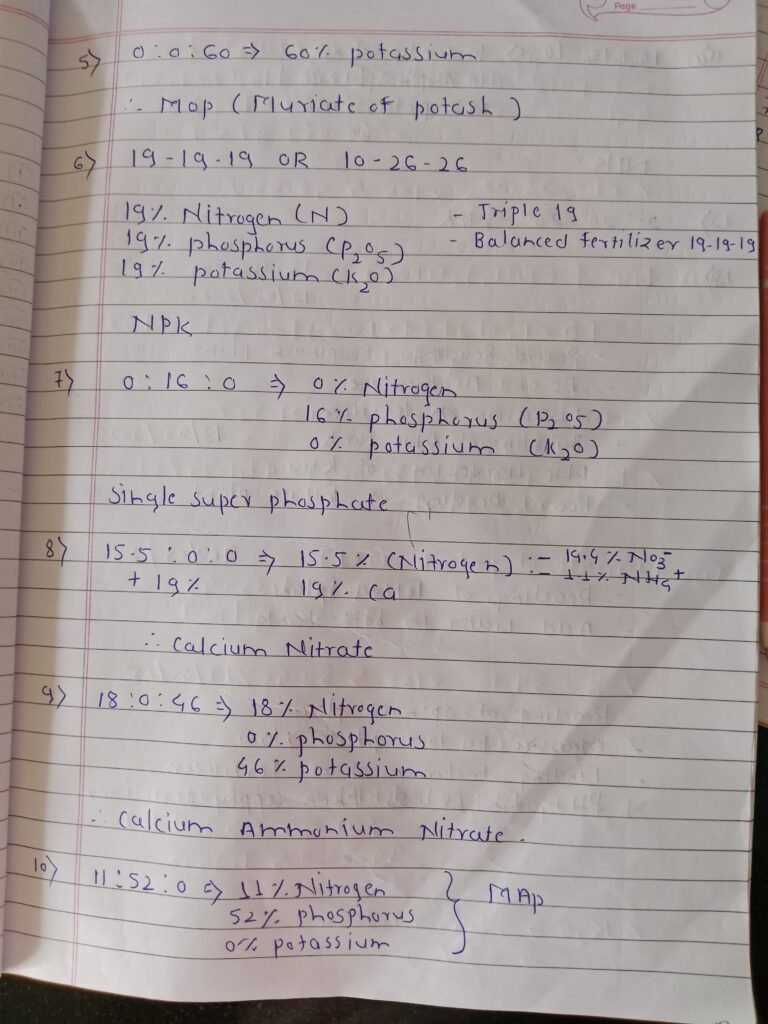 Page
5) 0:0:60 ⇒ 60% potassium
∴ Mop (Muriate of potash)
6) 19-19-19 OR 10-26-26
19% Nitrogen (N) - Triple 19
19% phosphorus (P₂O₅) - Balanced fertilizer 19-19-19
19% potassium (K₂O)
NPK
7) 0:16:0 ⇒ 0% Nitrogen
16% phosphorus (P₂O₅)
0% potassium (K₂O)
Single super phosphate
8) 15.5:0:0 ⇒ 15.5% (Nitrogen) :- 14.4% NO₃⁻
+ 19% 19% Ca :- 1.1% NH₄⁺
∴ Calcium Nitrate
9) 18:0:46 ⇒ 18% Nitrogen
0% phosphorus
46% potassium
∴ Calcium Ammonium Nitrate.
10) 11:52:0 ⇒ 11% Nitrogen } MAP
52% phosphorus
0% potassium